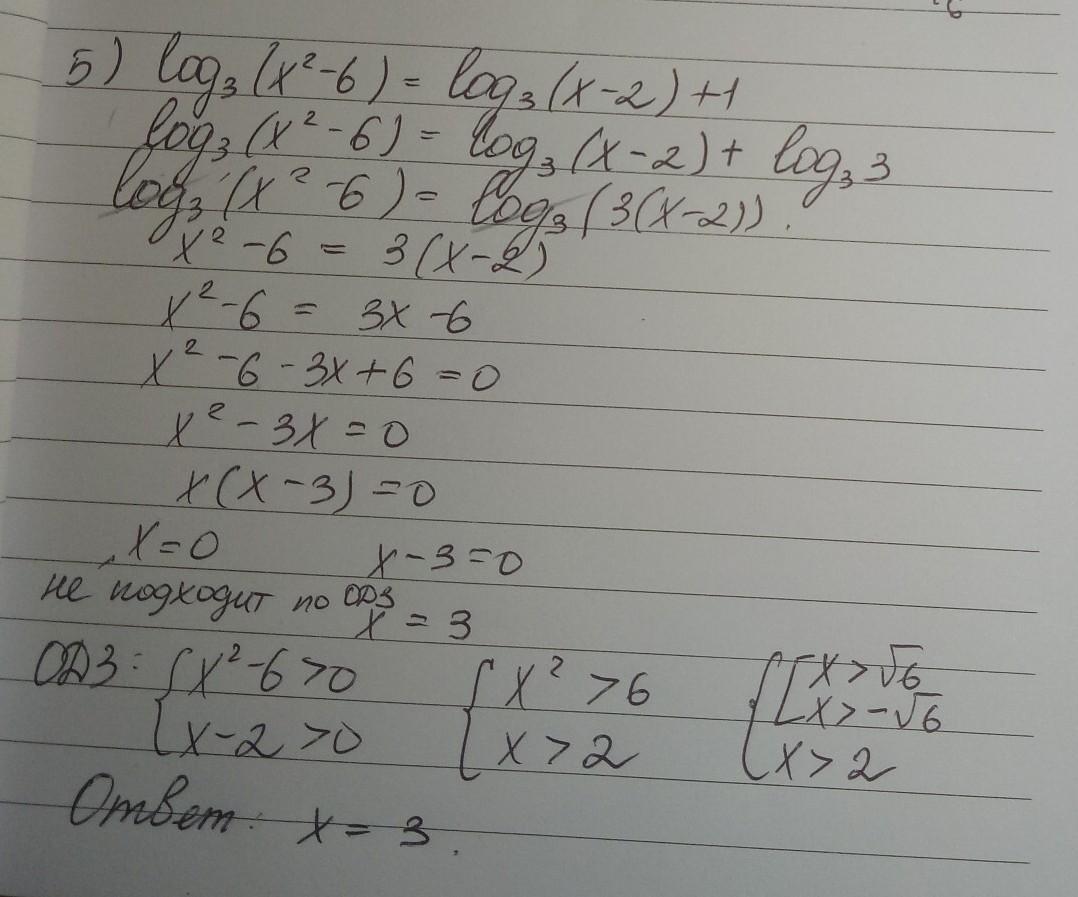 5) log₃(x²-6) = log₃(x-2)+1
log₃(x²-6) = log₃(x-2)+ log₃3
log₃(x²-6) = log₃(3(x-2)).
x²-6 = 3(x-2)
x²-6 = 3x-6
x²-6-3x+6=0
x²-3x=0
x(x-3)=0
x=0 x-3=0
не подходит по ОДЗ
x = 3
ОДЗ: {x²-6>0 {x²>6 {[x>√6
x-2>0 x>2 x>-√6
x>2
Ответ: x=3.